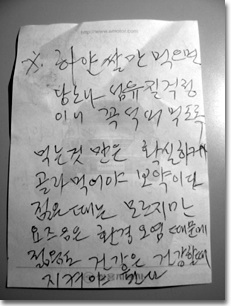 ※. 하얀 쌀만 먹으면
당뇨나 섬유질걱정
이니 꼭 섞어 먹도록
먹는것 만은 확실하게
골라먹어야 보약이다
젊을때는 모르지만
요즈음은 환경오염 때문에
젊음도 건강은 건강할때
지켜야